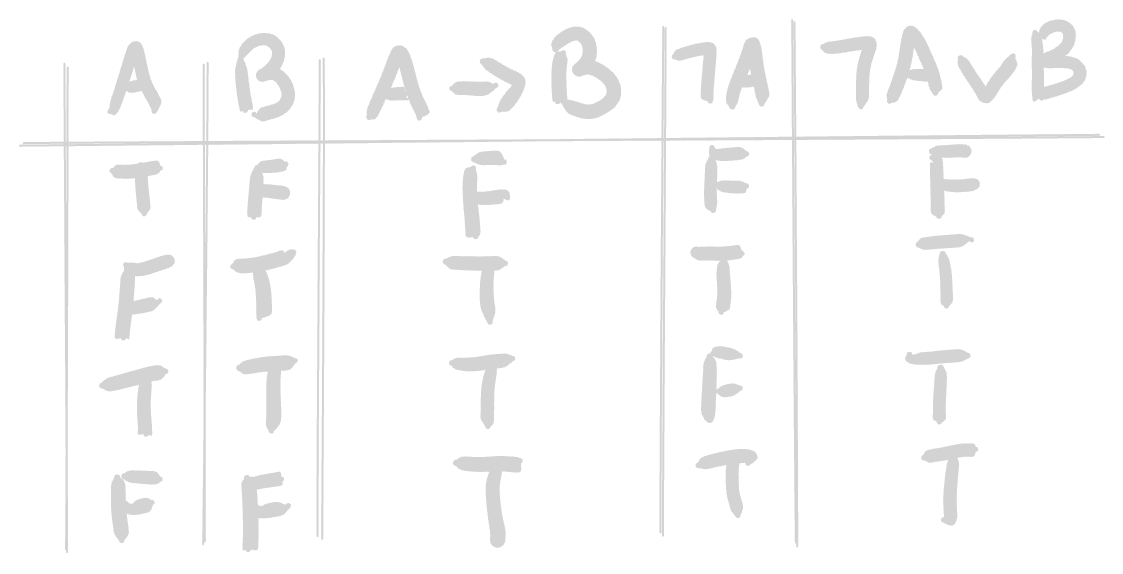 A B A → B ¬A ¬A ∨ B
T F F F F
F T T T T
T T T F T
F F T T T